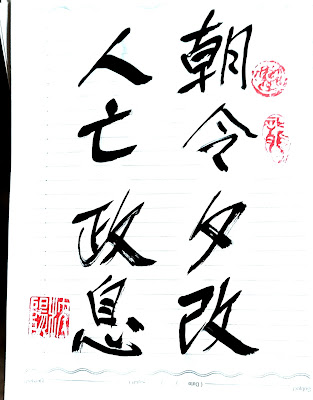 朝令夕改
人亡政息